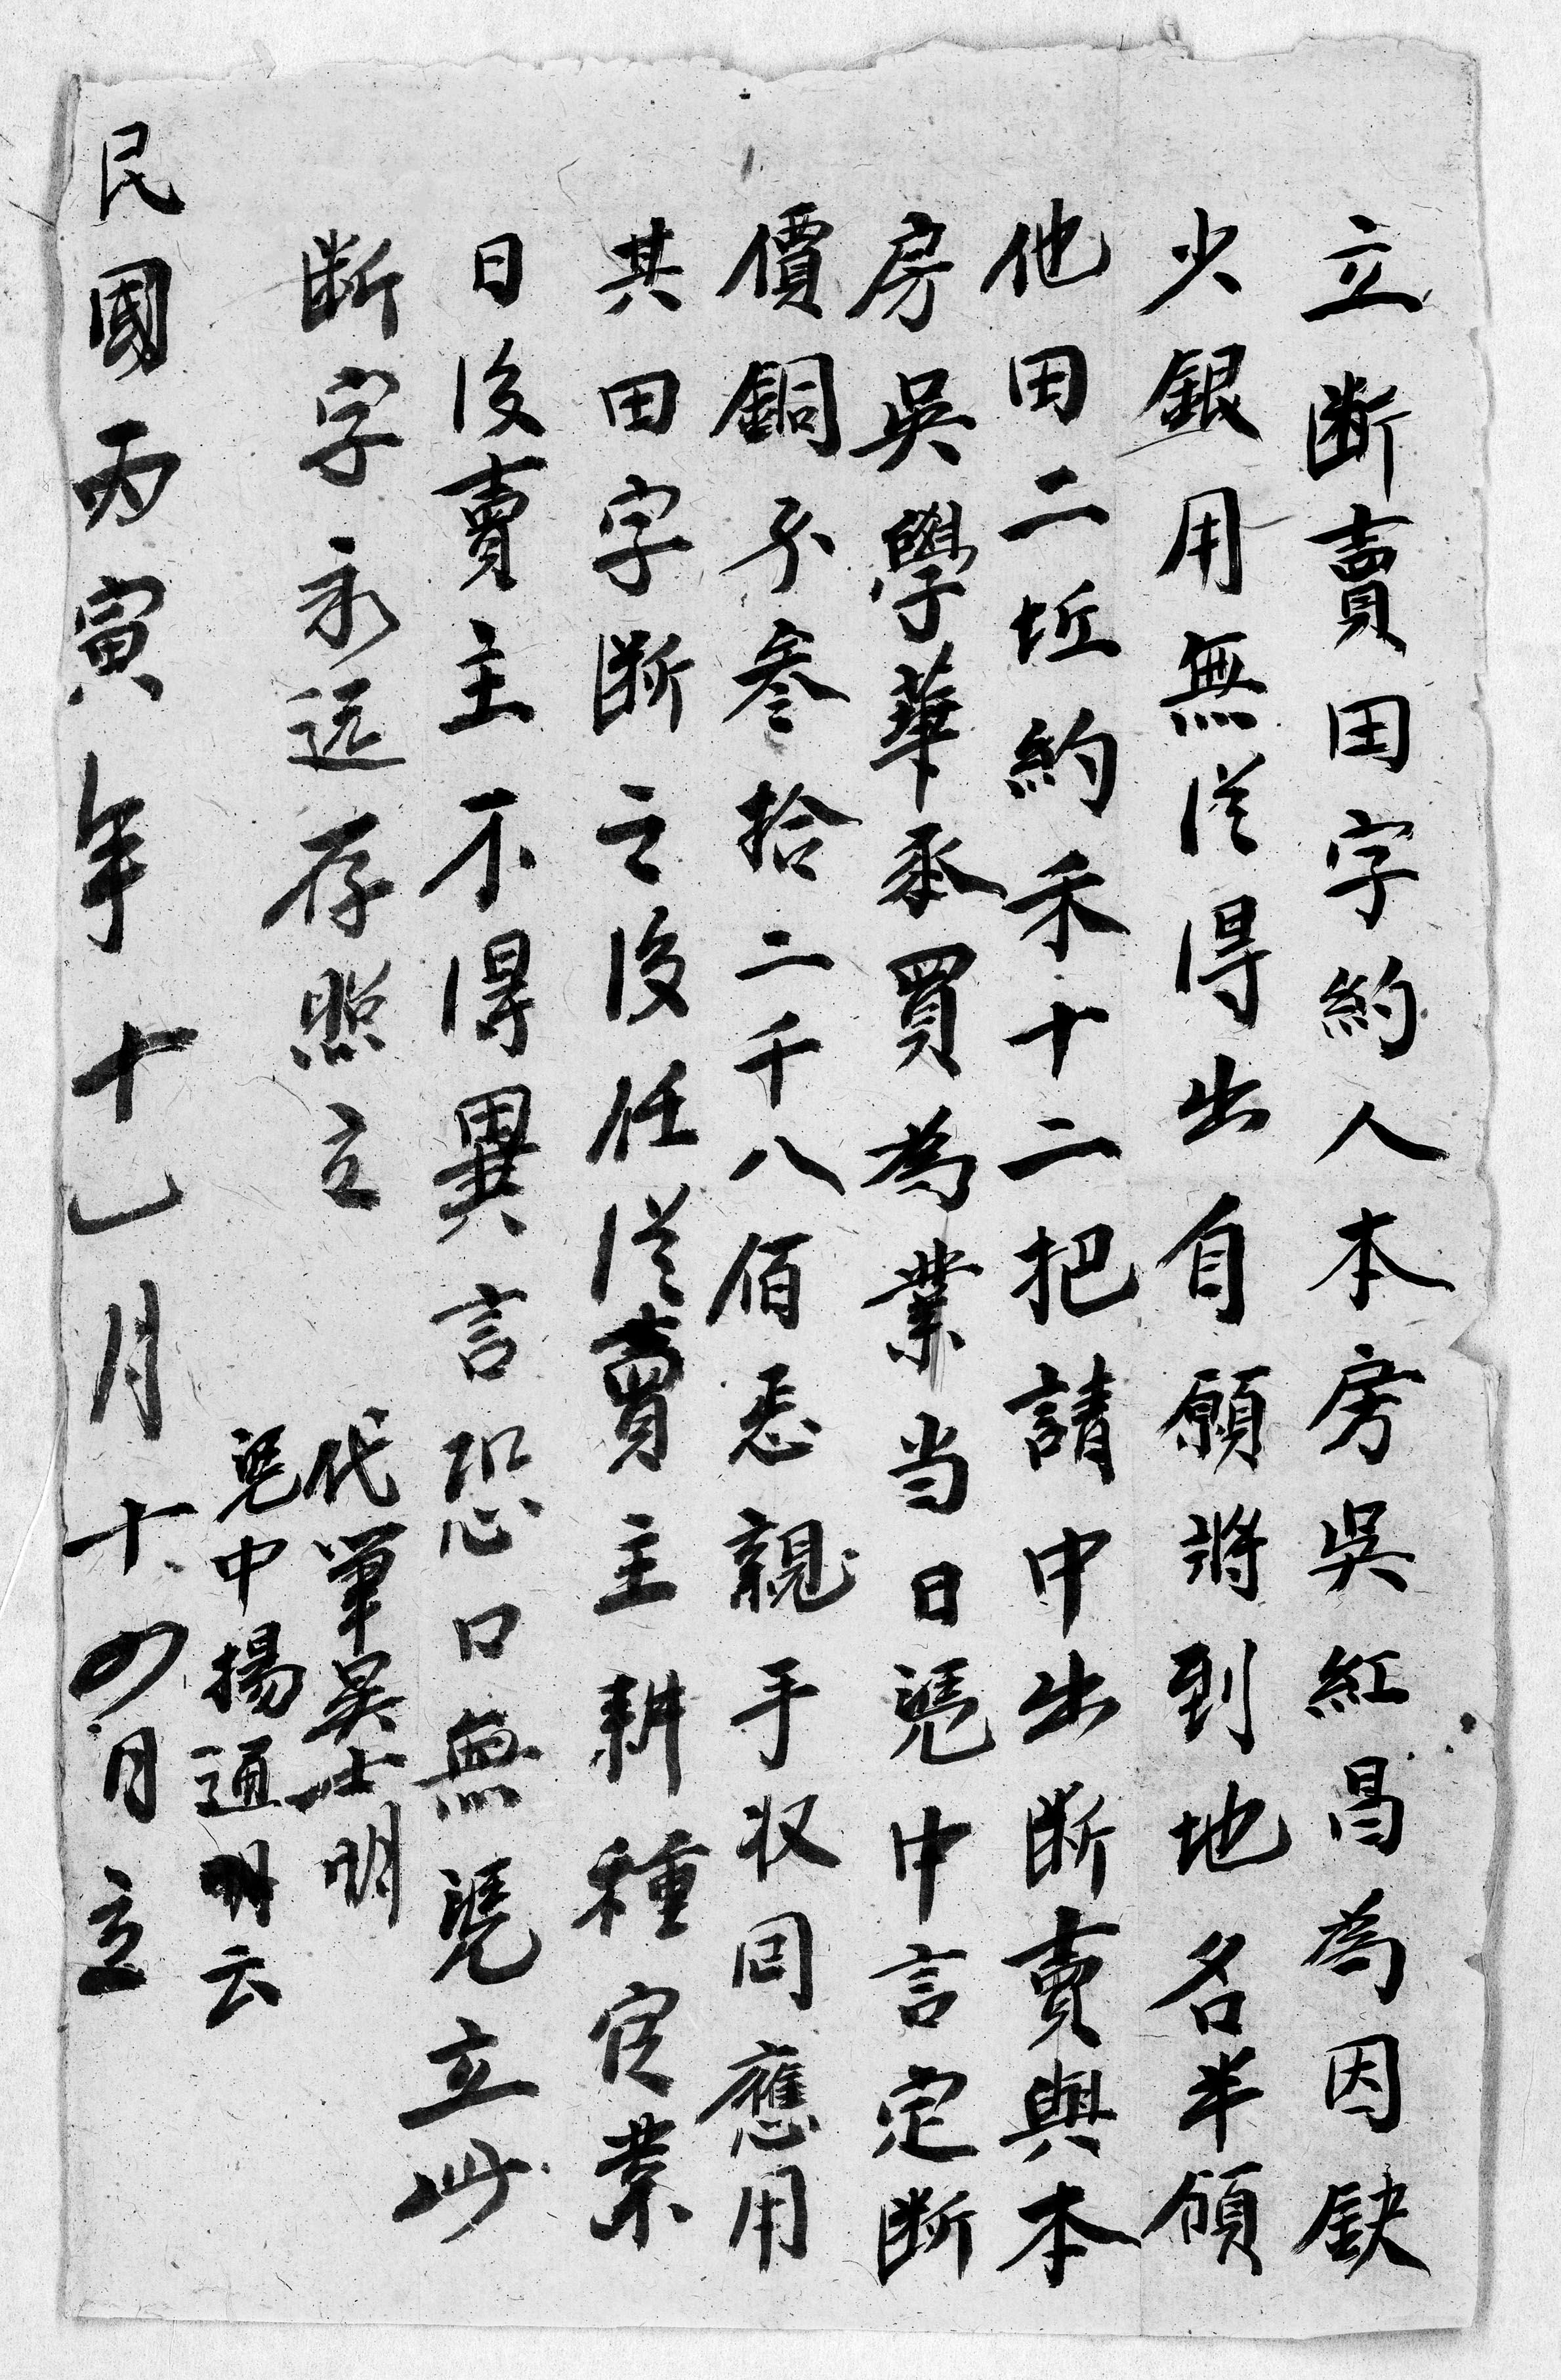 立断賣田字約人本房吳紅昌為因缺
少銀用無從得出自願將到地名半領
他田二坵約禾十二把請中出断賣與本
房吳學華承買為業当日凴中言定断
價銅不叁拾二千八佰悉親手収囬應用
其田字断之後任從賣主耕種管業
日後賣主不得異言恐口無凴立此
断字永远存照立
代筆吳士明
凴中揚通明云
民國丙寅年十乙月十四日立